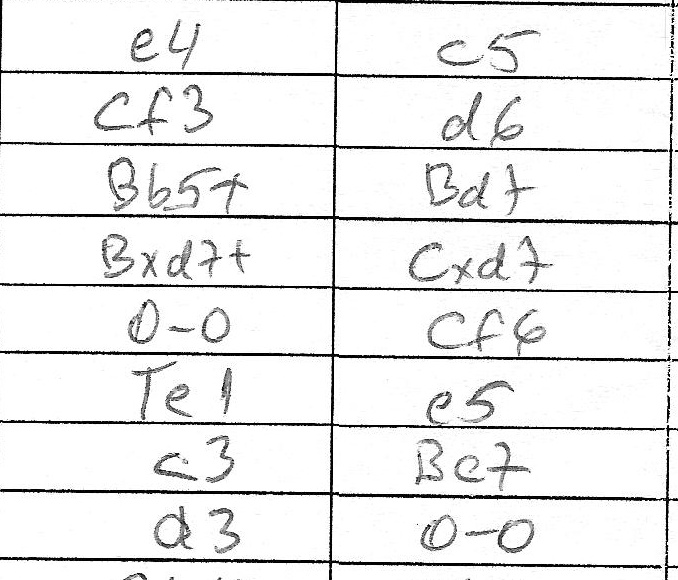 e4 c5
Cf3 d6
Bb5+ Bd7
Bxd7+ Cxd7
0-0 Cf6
Te1 e5
c3 Be7
d3 0-0